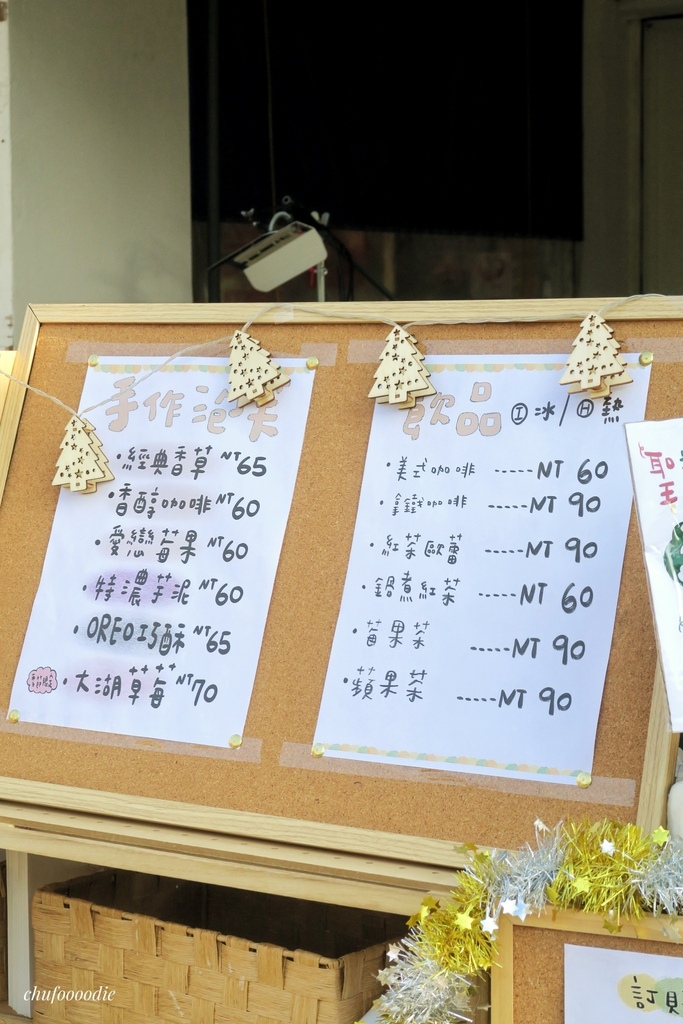 手作泡芙
・經典香草 NT65
・香醇咖啡 NT60
・愛戀莓果 NT60
・特濃芋泥 NT60
・OREO巧酥 NT65
・大湖草莓 NT70
飲品 Ⓘ冰/Ⓗ熱
・美式咖啡 -----NT 60
・拿鐵咖啡 -----NT 90
・紅茶歐蕾 -----NT 90
・鍋煮紅茶 -----NT 60
・莓果茶 -----NT 90
・蘋果茶 -----NT 90
聖
訂
chufoooodie